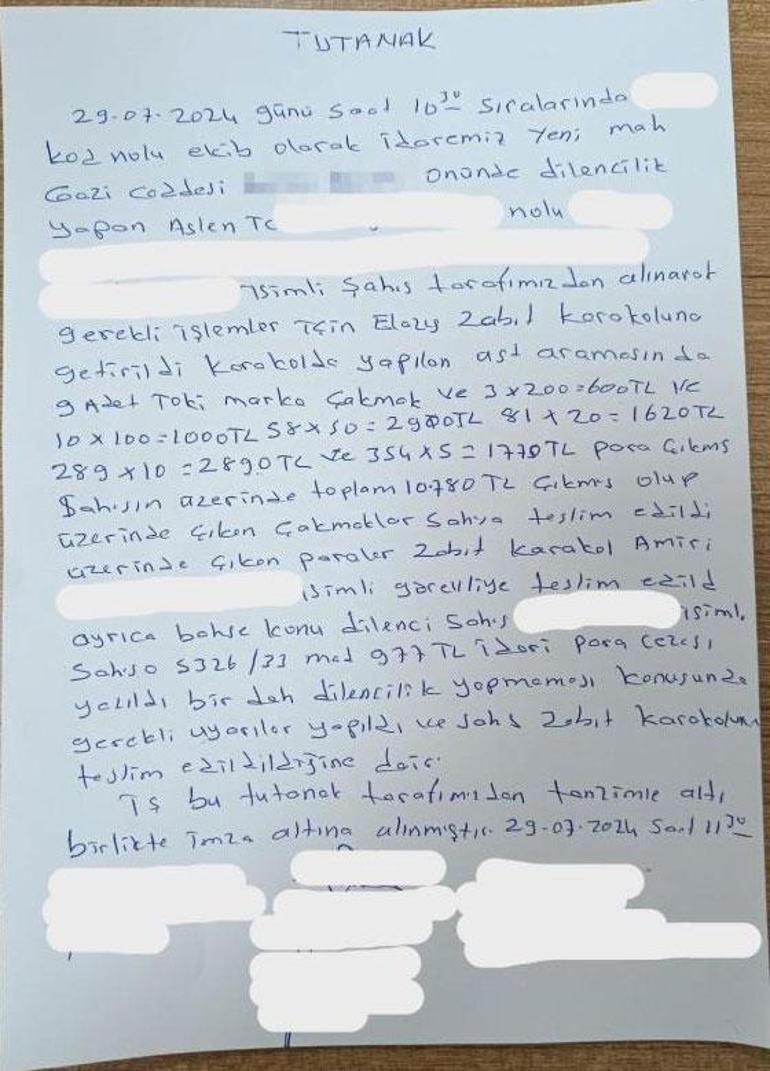 TUTANAK
29.07.2024 günü saat 10³⁰ sıralarında
kod nolu ekib olarak idaremiz Yeni mah
Gazi caddesi önünde dilencilik
yapan Aslen Tc nolu
isimli Şahıs tarafımızdan alınarak
gerekli işlemler için Elazığ Zabıt Karakoluna
getirildi Karakolda yapılan üst aramasında
9 Adet Toki marka Çakmak ve 3x200=600TL ve
10x100=1000TL 58x50=2900TL 81x20=1620TL
289x10=2890TL ve 354x5=1770TL para Çıkmış
Şahısın üzerinde toplam 10.780 TL Çıkmış olup
üzerinde Çıkan Çakmaklar Şahsa teslim edildi
üzerinde Çıkan paralar Zabıt Karakol Amiri
isimli görevliye teslim edild
ayrıca bahse konu dilenci Şahıs isiml.
Şahsa 5326/33 mad 977 TL idari para cezası
yazıldı bir dah dilencilik yapmaması konusunda
gerekli uyarılar yapıldı ve şahs Zabıt Karakoluna
teslim edildildiğine dair.
İş bu tutanak tarafımızdan tanzimle altı
birlikte imza altına alınmıştır. 29.07.2024 Saat 11³⁰